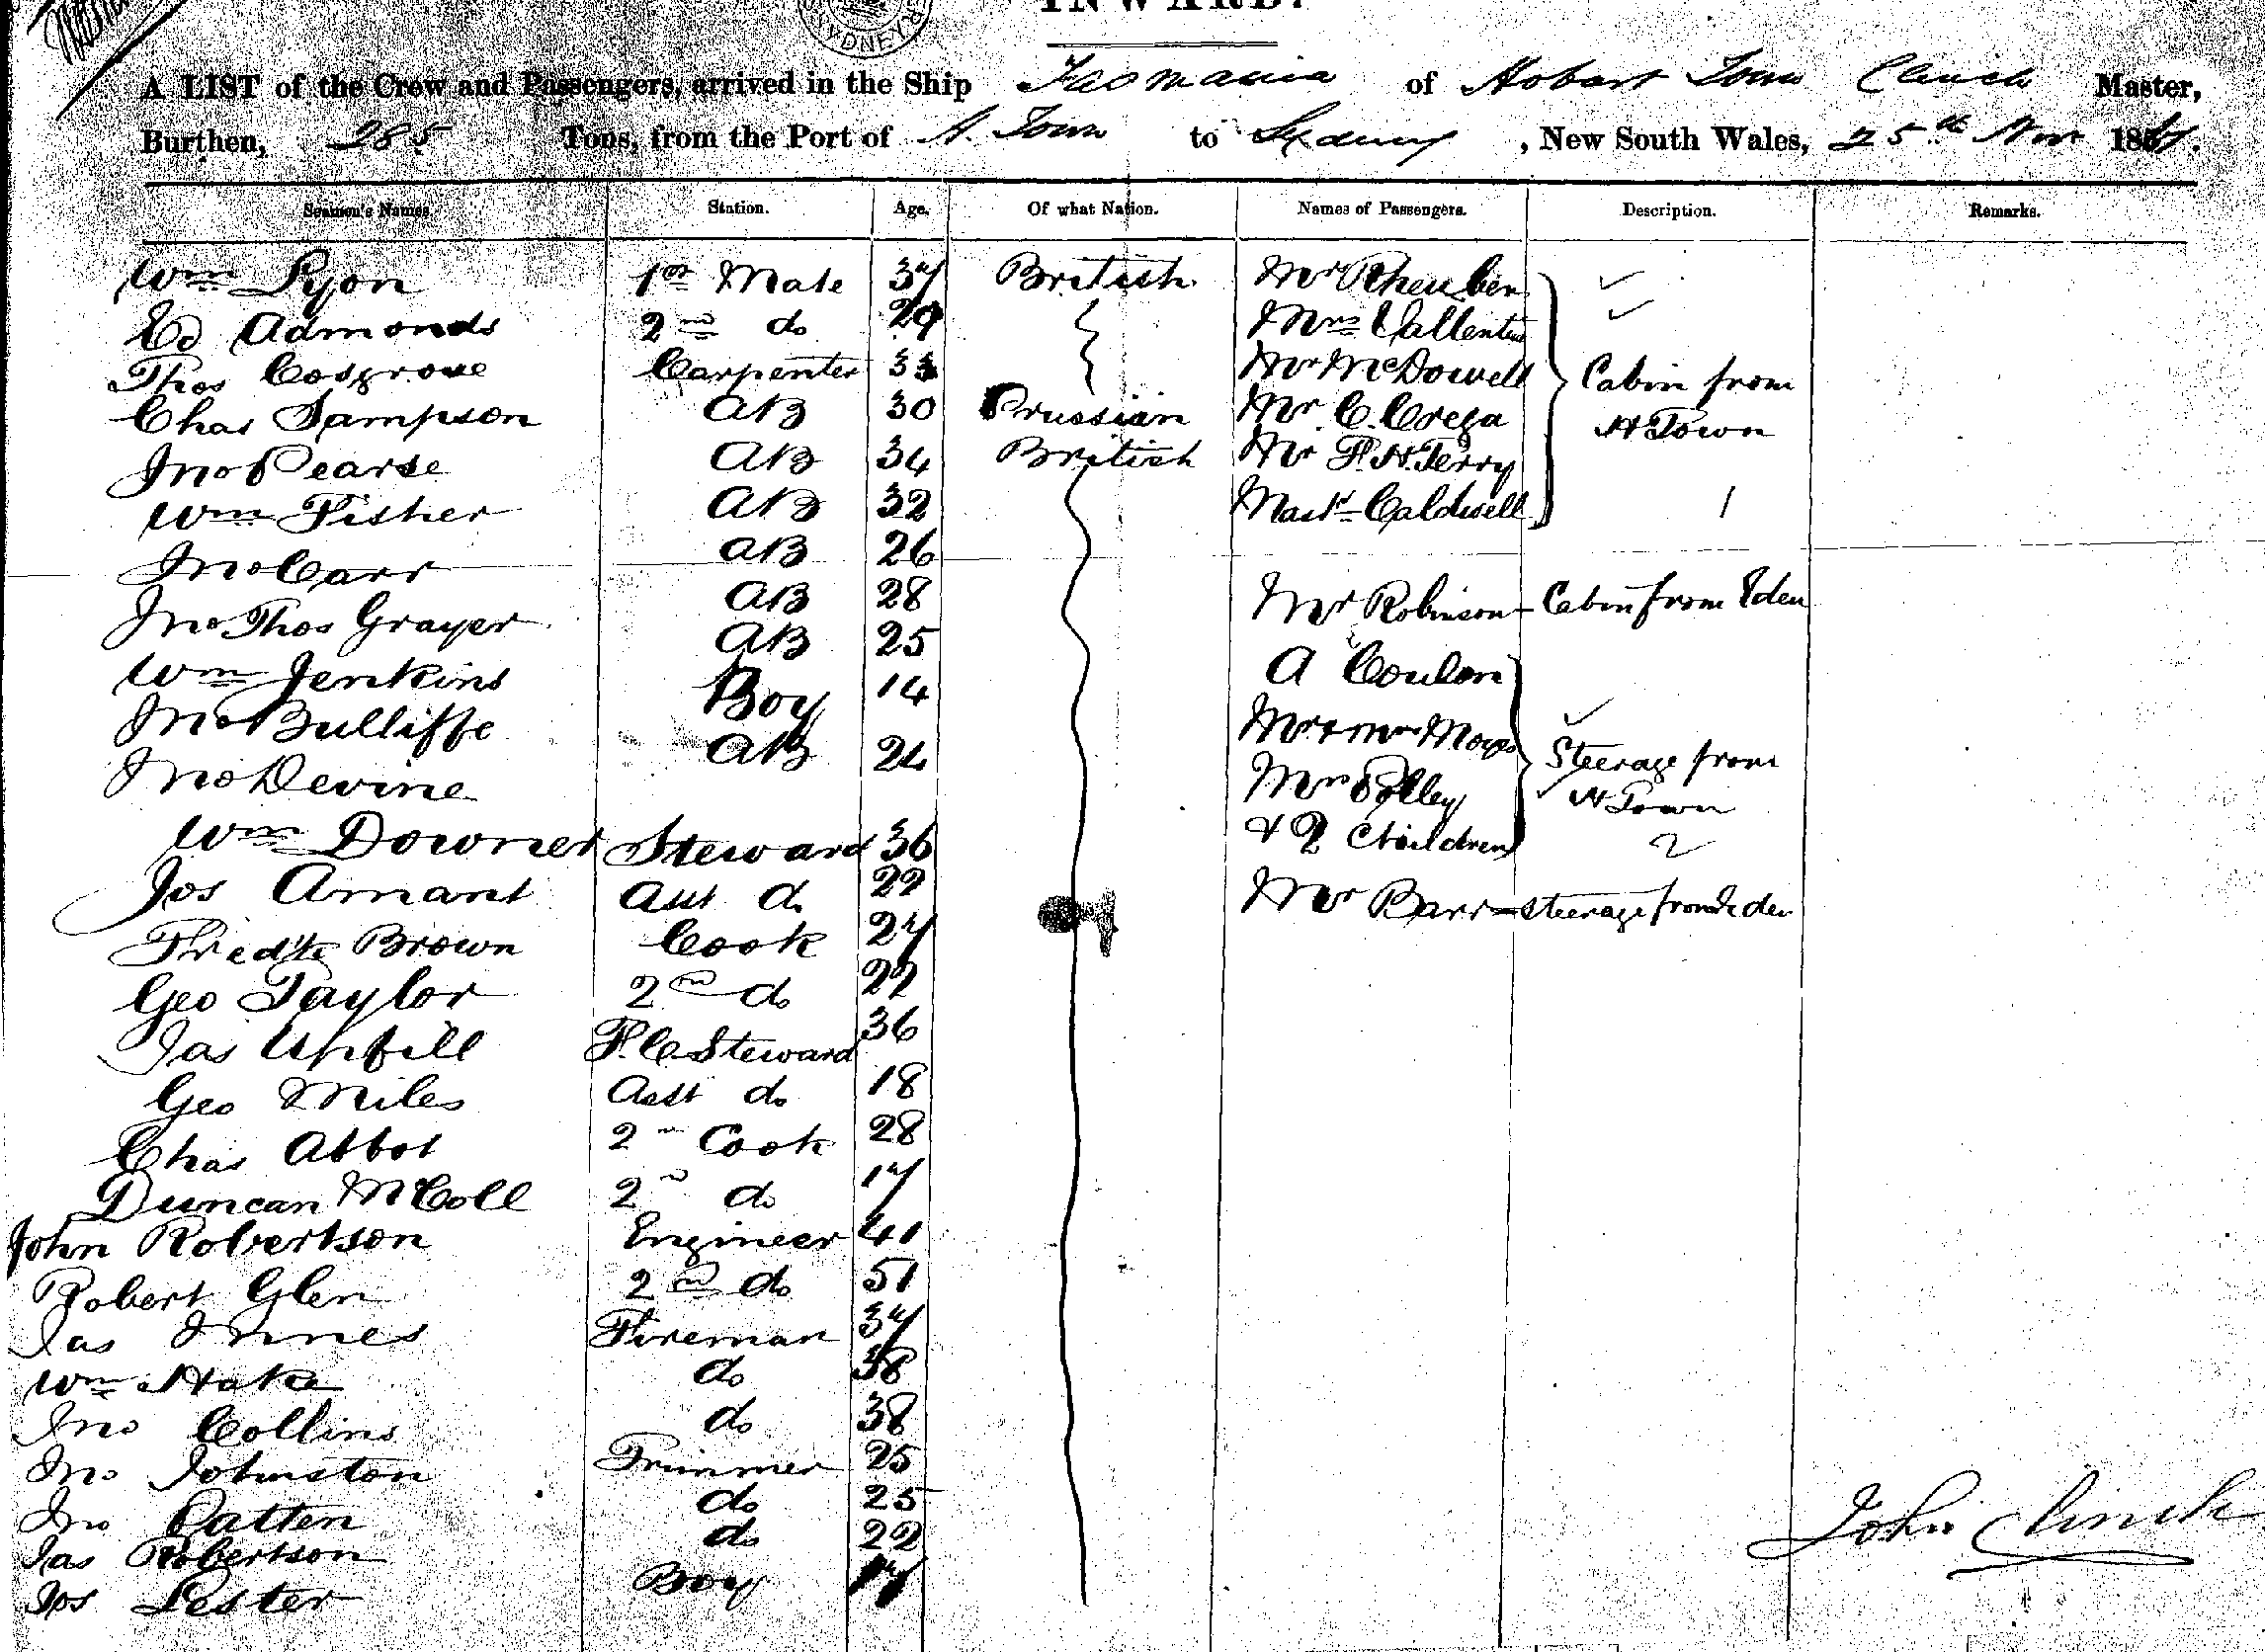 INWARD.
SYDNEY
A LIST of the Crew and Passengers, arrived in the Ship Tasmania of Hobart Town Clinch Master,
Burthen, 285 Tons, from the Port of H. Town to Sydney, New South Wales, 25th Nov 186
Seamen's Names. Station. Age. Of what Nation. Names of Passengers. Description. Remarks.
Wm Lyon 1st Mate 37 British Mr Rheuben
Ed Admonds 2nd do 29 Mrs Vallentine
Thos Cosgrove Carpenter 33 Mr McDowell Cabin from
Chas Sampson AB 30 Prussian Mr C. Crega H Town
Jno Pearse AB 34 British Mr F. H. Terry
Wm Fisher AB 32 Mastr Caldwell 1
Jno Carr AB 26
Jno Thos Grayer AB 28 Mr Robinson - Cabin from Eden
Wm Jenkins AB 25 A Coulon
Jno Bulliffe Boy 14 Mr & Mrs Moyes Steerage from
Jno Devine AB 24 Mrs Polley H Town
Wm Downer Steward 36 & 2 Children 2
Jos Amant Asst do 22 Mr Barr - Steerage from Eden
Fredk Brown Cook 27
Geo Taylor 2nd do 22
Jas Upfill F.C. Steward 36
Geo Miles Asst do 18
Chas Abbot 2nd Cook 28
Duncan McColl 2nd do 17
John Robertson Engineer 41
Robert Glen 2nd do 51
Jas Innes Fireman 37
Wm Hake do 38
Jno Collins do 38
Jno Johnston Trimmer 25
Jno Patten do 25
Jas Robertson do 22
Jos Lester Boy 17
John Clinch